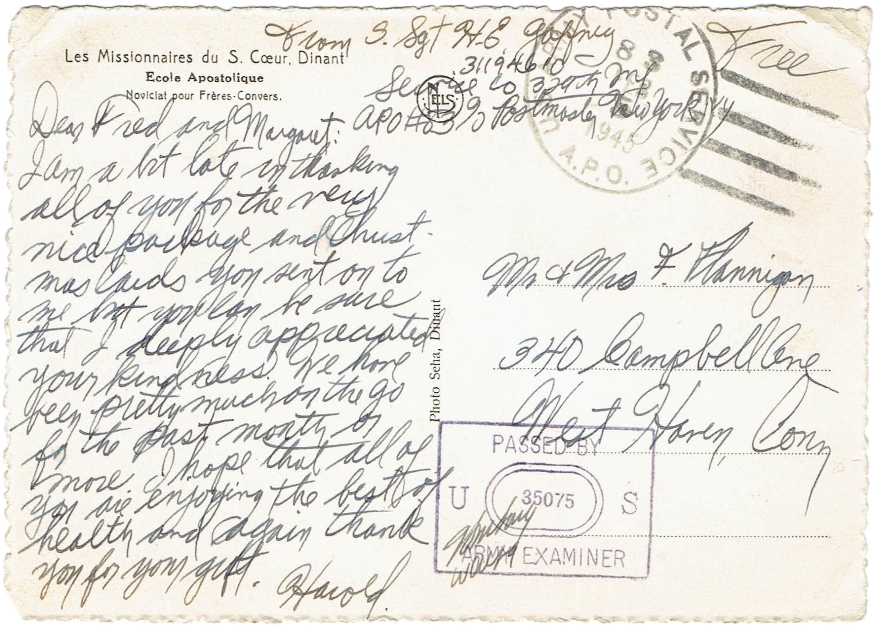 From S. Sgt H.E. Gafney
31194610
Free
Les Missionnaires du S. Cœur, Dinant
Ecole Apostolique
Noviciat pour Frères-Convers.
NELS
Service Co 329th Inf
APO #83 % Postmaster New York NY
POSTAL SERVICE
8
1945
U.S. A.P.O.
Dear Fred and Margaret:
I am a bit late in thanking
all of you for the very
nice package and Christ-
mas cards you sent on to
me but you can be sure
that I deeply appreciated
your kindness. We have
been pretty much on the go
for the past month or
more. I hope that all of
you are enjoying the best of
health and again thank
you for your gift.
Harold.
Photo Seha, Dinant
Mr & Mrs F. Flannigan
340 Campbell Ave
West Haven, Conn
PASSED BY
U 35075 S
ARMY EXAMINER